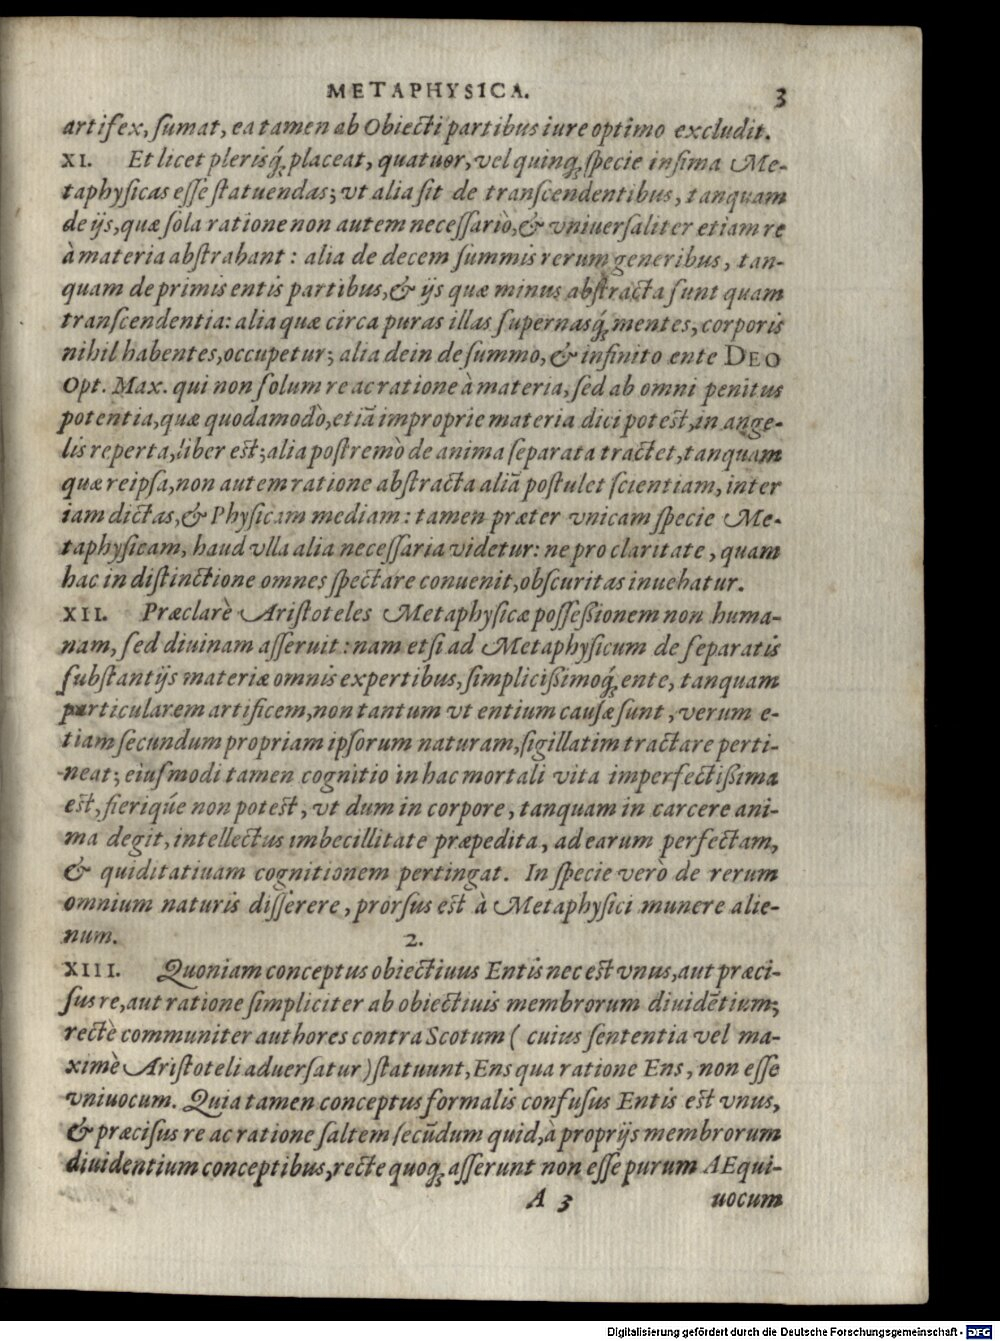 METAPHYSICA. 3
artifex, sumat, ea tamen ab Obiecti partibus iure optimo excludit.
XI. Et licet plerisq́; placeat, quatuor, vel quinq; specie infima Me-
taphysicas esse statuendas; vt alia sit de transcendentibus, tanquam
de ijs, quæ sola ratione non autem necessariò, & vniuersaliter etiam re
à materia abstrahant: alia de decem summis rerum generibus, tan-
quam de primis entis partibus, & ijs quæ minus abstracta sunt quam
transcendentia: alia quæ circa puras illas supernasq́; mentes, corporis
nihil habentes, occupetur; alia dein de summo, & infinito ente DEO
Opt. Max. qui non solum re ac ratione à materia, sed ab omni penitus
potentia, quæ quodamodo, etiā improprie materia dici potest, in ange-
lis reperta, liber est; alia postremò de anima separata tractet, tanquam
quæ reipsa, non autem ratione abstracta aliā postulet scientiam, inter
iam dictas, & Physicam mediam: tamen præter vnicam specie Me-
taphysicam, haud vlla alia necessaria videtur: ne pro claritate, quam
hac in distinctione omnes spectare conuenit, obscuritas inuehatur.
XII. Præclarè Aristoteles Metaphysicæ possessionem non huma-
nam, sed diuinam asseruit: nam etsi ad Metaphysicum de separatis
substantijs materiæ omnis expertibus, simplicissimoq́; ente, tanquam
particularem artificem, non tantum vt entium causæ sunt, verum e-
tiam secundum propriam ipsorum naturam, sigillatim tractare perti-
neat; eiusmodi tamen cognitio in hac mortali vita imperfectissima
est, fieriq́ue non potest, vt dum in corpore, tanquam in carcere ani-
ma degit, intellectus imbecillitate præpedita, ad earum perfectam,
& quiditatiuam cognitionem pertingat. In specie verò de rerum
omnium naturis disserere, prorsus est à Metaphysici munere alie-
num. 2.
XIII. Quoniam conceptus obiectiuus Entis nec est vnus, aut præci-
sus re, aut ratione simpliciter ab obiectiuis membrorum diuidētium;
rectè communiter authores contra Scotum ( cuius sententia vel ma-
ximè Aristoteli aduersatur) statuunt, Ens qua ratione Ens, non esse
vniuocum. Quia tamen conceptus formalis confusus Entis est vnus,
& præcisus re ac ratione saltem secūdum quid, à proprijs membrorum
diuidentium conceptibus, recte quoq; asserunt non esse purum AEqui-
A 3 uocum
Digitalisierung gefördert durch die Deutsche Forschungsgemeinschaft - DFG